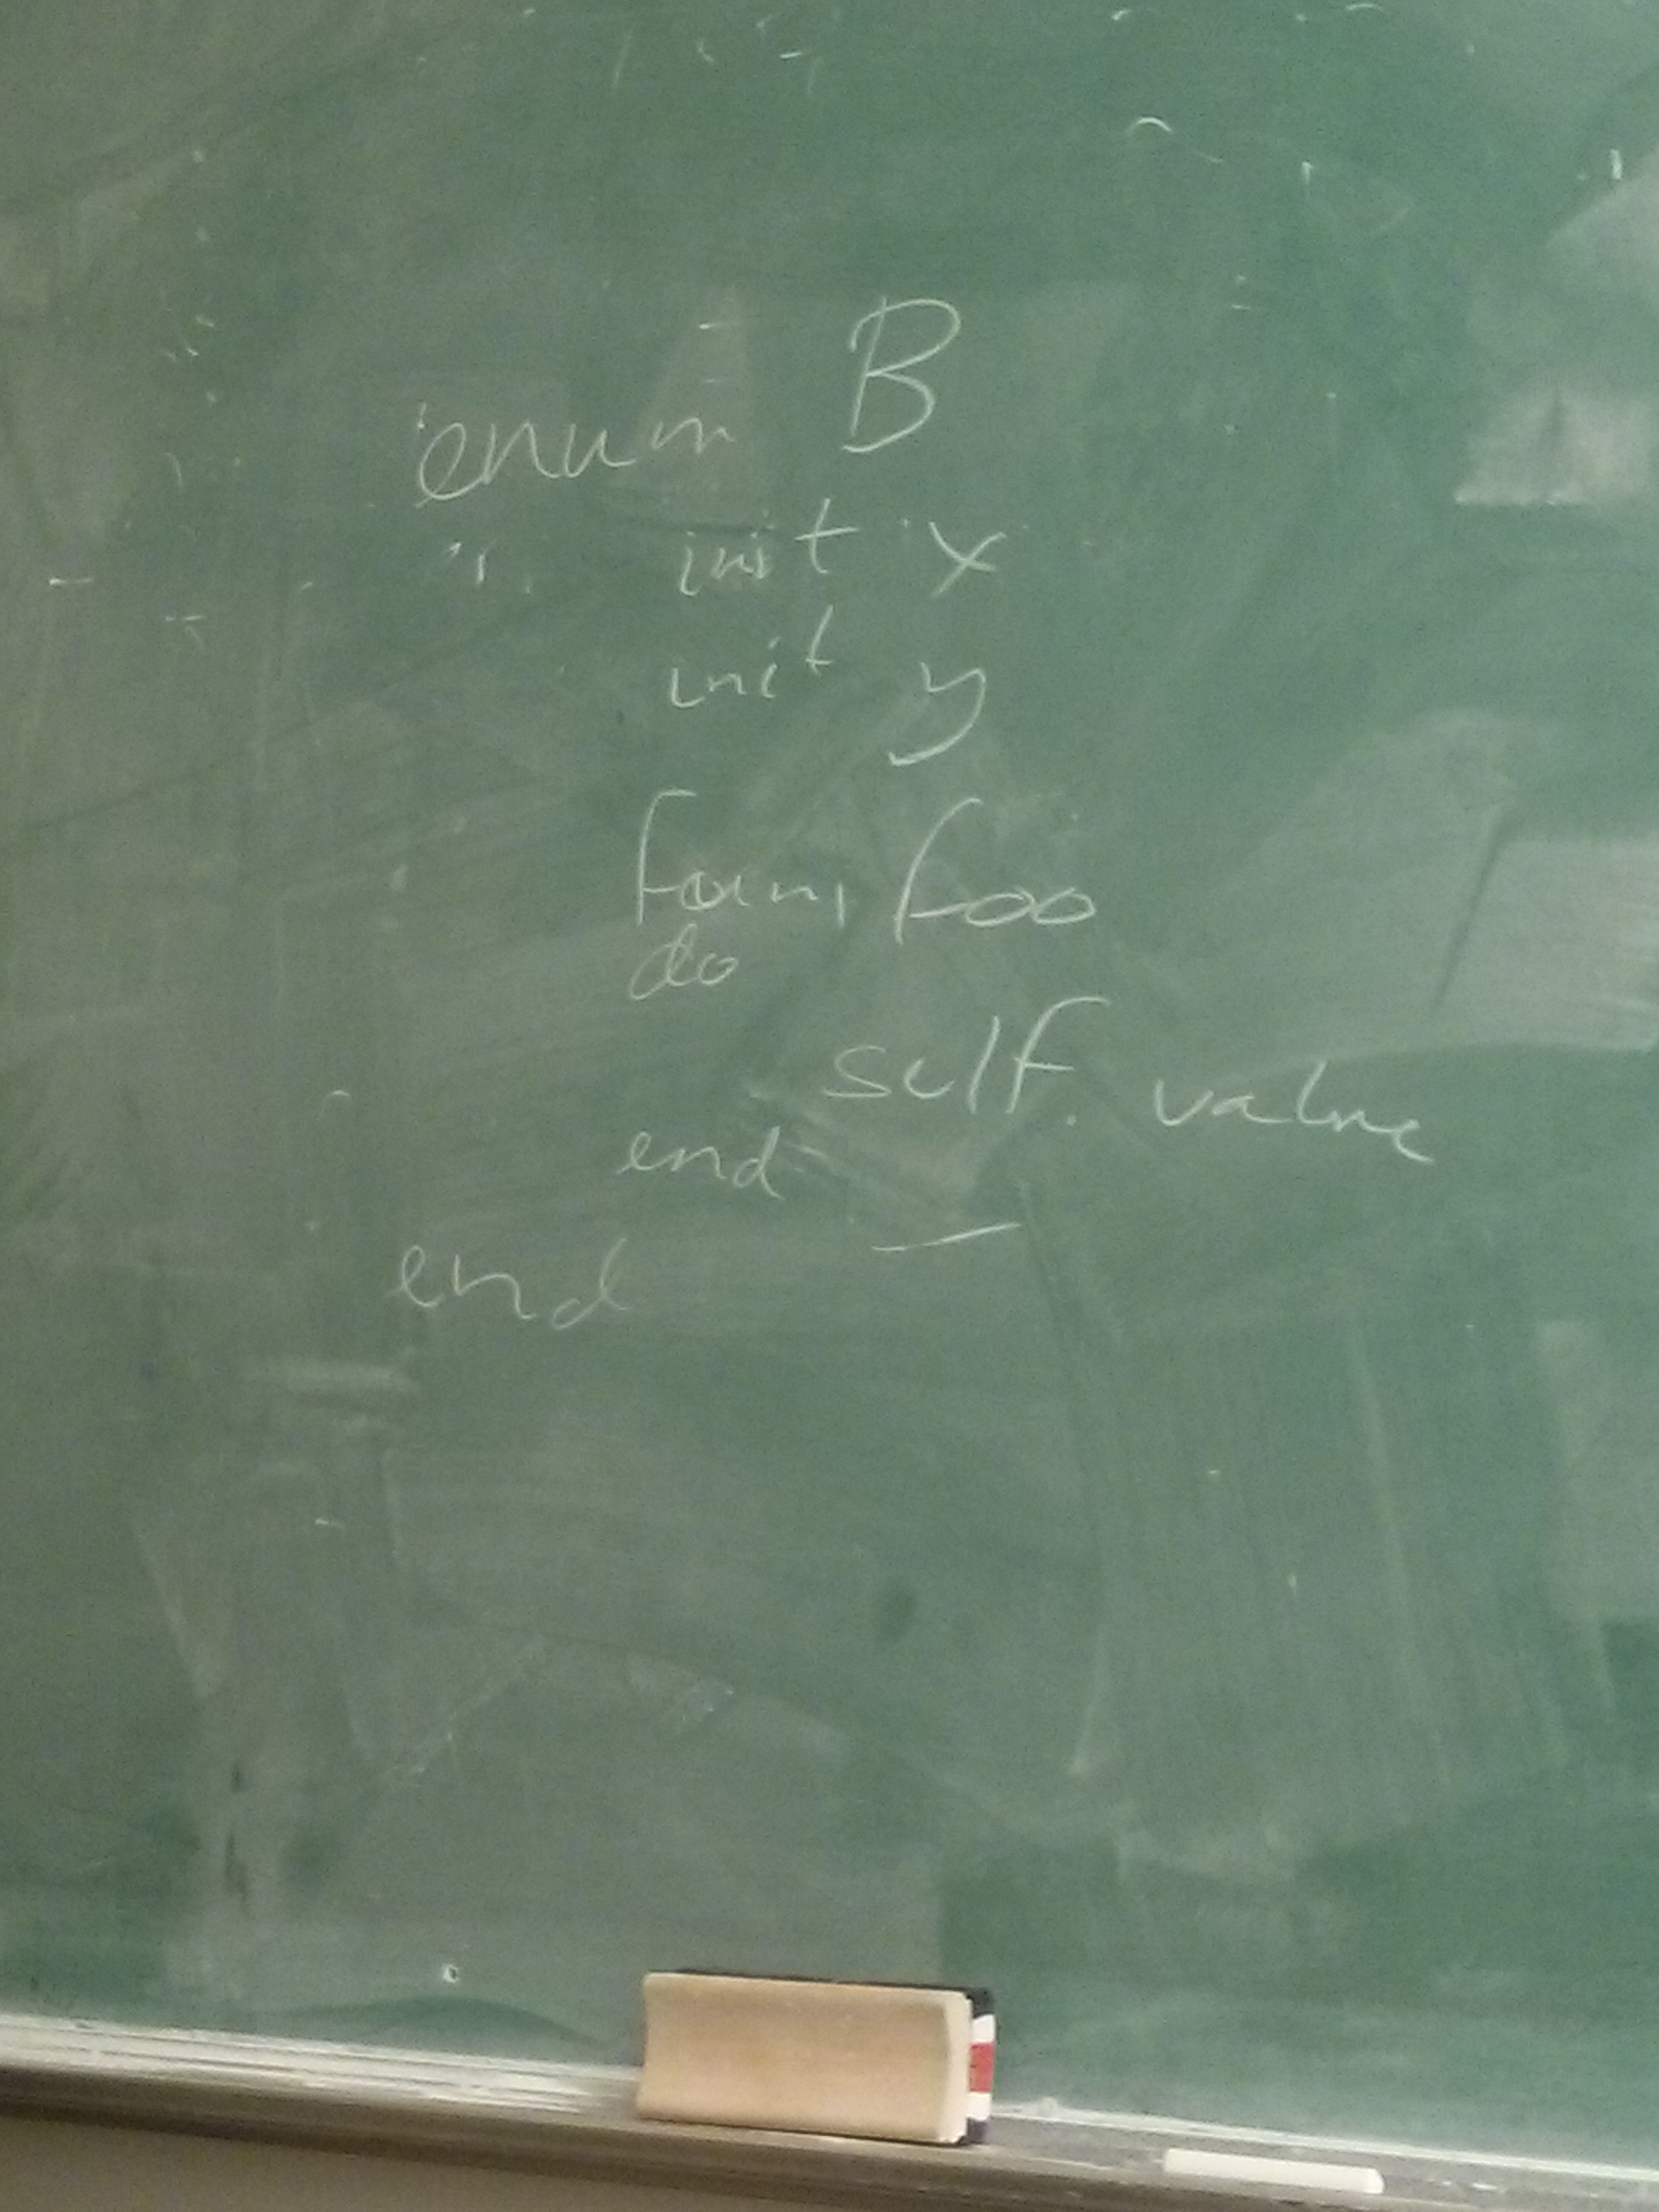 enum B
init x
init y
foo
do
self. value
end
end